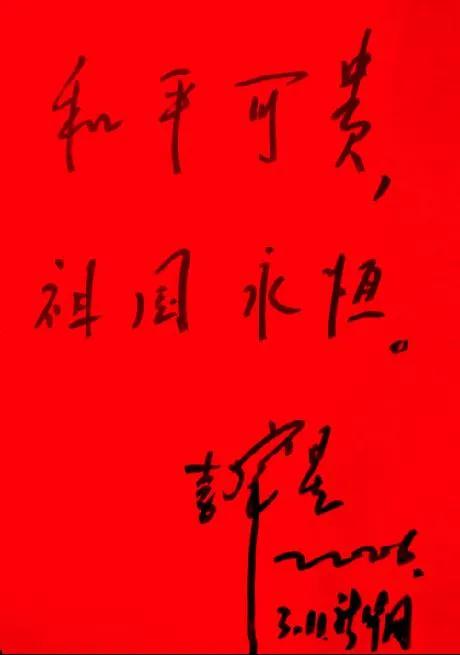 和平可贵,
祖国永恒。
2006.
3.11.